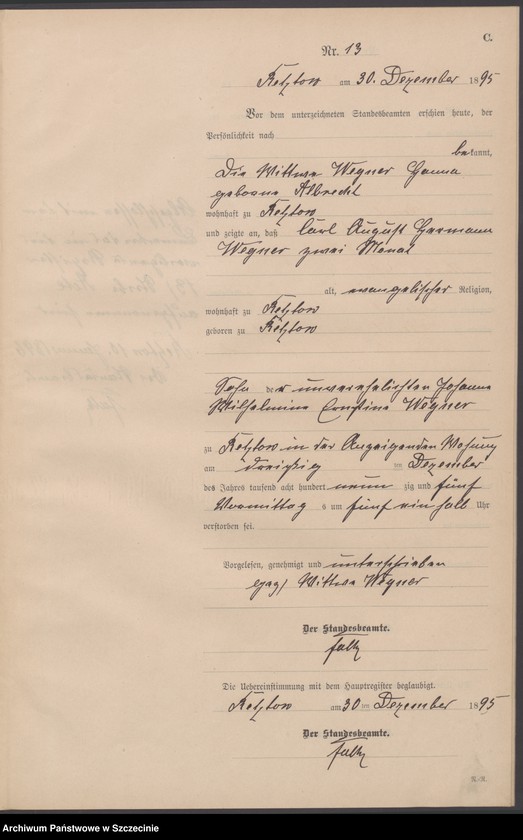 C.
Nr. 13
Retztow am 30. Dezember 1895
Vor dem unterzeichneten Standesbeamten erschien heute, der
Persönlichkeit nach
bekannt,
Die Wittwe Wegner Hanna
geborne Albrecht
wohnhaft zu Retztow
und zeigte an, daß Carl August Hermann
Wegner zwei Monat
alt, evangelischer Religion,
wohnhaft zu Retztow
geboren zu Retztow
Sohn der unverehelichten Johanne
Wilhelmine Ernstine Wegner
zu Retztow in der Anzeigenden Wohnung
am dreißig ten Dezember
des Jahres tausend acht hundert neun zig und fünf
Vormittag s um fünf ein halb Uhr
verstorben sei.
Vorgelesen, genehmigt und unterschrieben
gez/ Wittwe Wegner
Der Standesbeamte.
Falk
Die Uebereinstimmung mit dem Hauptregister beglaubigt.
Retztow am 30 ten Dezember 1895
Der Standesbeamte.
Falk
Archiwum Państwowe w Szczecinie